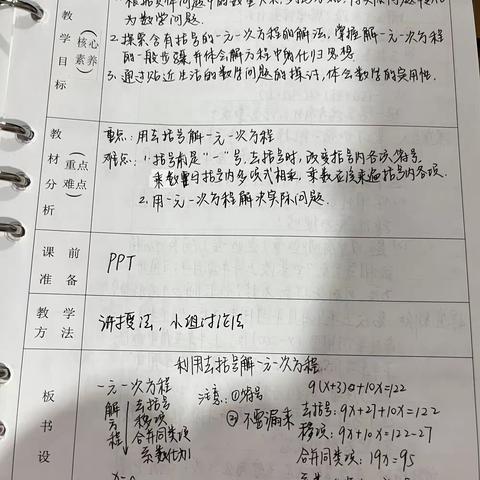 为数学问题.
2. 探索含有括号的一元一次方程的解法, 掌握解一元一次方程
的一般步骤, 并体会解方程中的化归思想
3. 通过贴近生活的数学问题的探讨, 体会数学的实用性.
教学目标（核心素养）
教材分析（重点难点）
重点: 用去括号解一元一次方程
难点: 1. 括号前是"一"号, 去括号时, 改变括号内各项符号.
乘数与括号内多项式相乘, 乘数应该乘遍括号内各项.
2. 用一元一次方程解决实际问题.
课前
准备
PPT
教学
方法
讲授法, 小组讨论法
板书设
利用去括号解一元一次方程
一元一次方程
解方程
去括号
移项
合并同类项
系数化为1
注意: ①符号
② 不要漏乘
9(x+3)+10x=122
去括号: 9x+27+10x=122
移项: 9x+10x=122-27
合并同类项: 19x=95